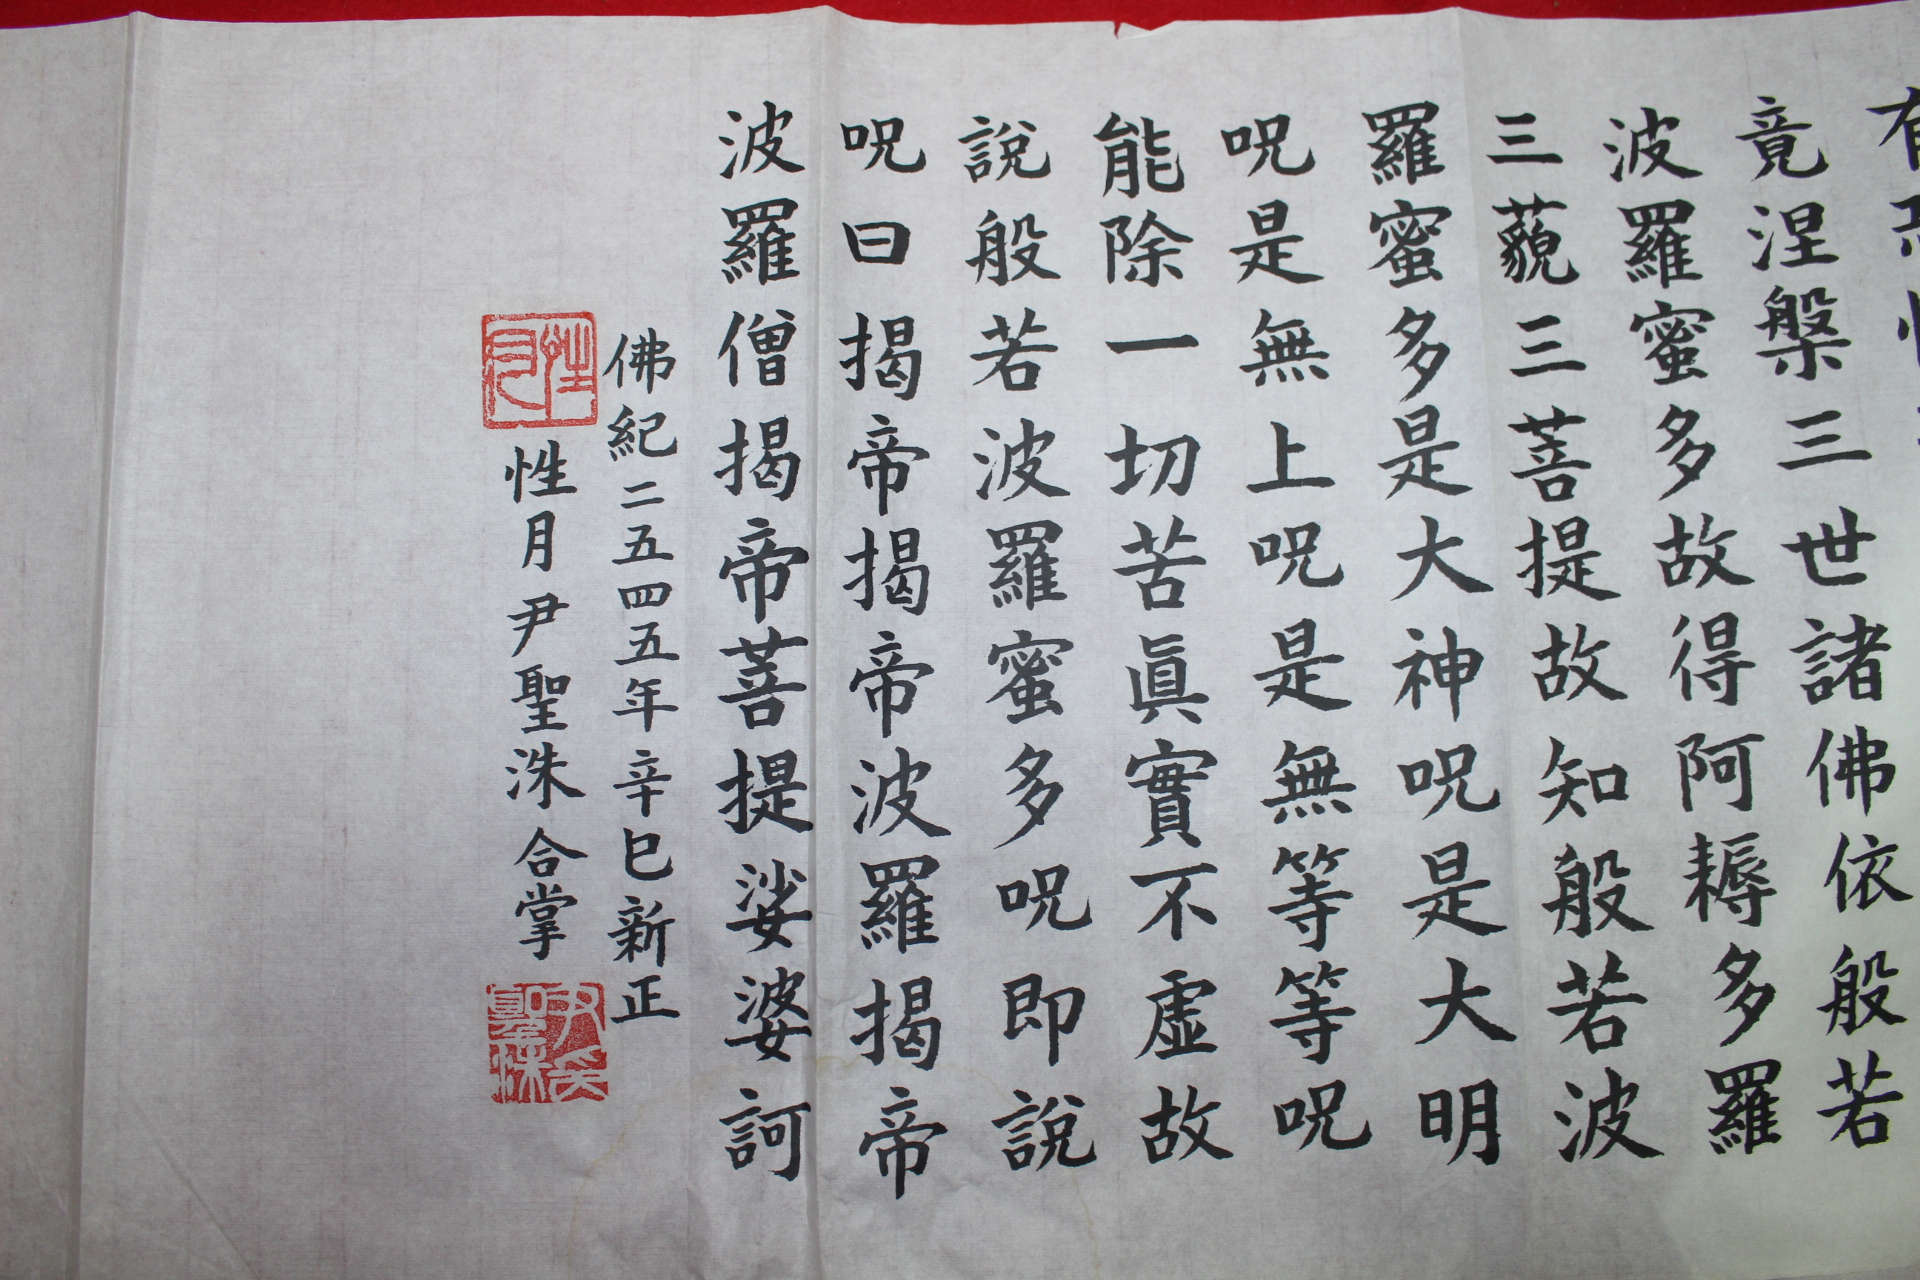 竟涅槃三世諸佛依般若
波羅蜜多故得阿耨多羅
三藐三菩提故知般若波
羅蜜多是大神呪是大明
呪是無上呪是無等等呪
能除一切苦眞實不虛故
說般若波羅蜜多呪即說
呪曰揭帝揭帝波羅揭帝
波羅僧揭帝菩提娑婆訶
佛紀二五四五年辛巳新正
性月尹聖洙合掌
性月
尹氏聖洙